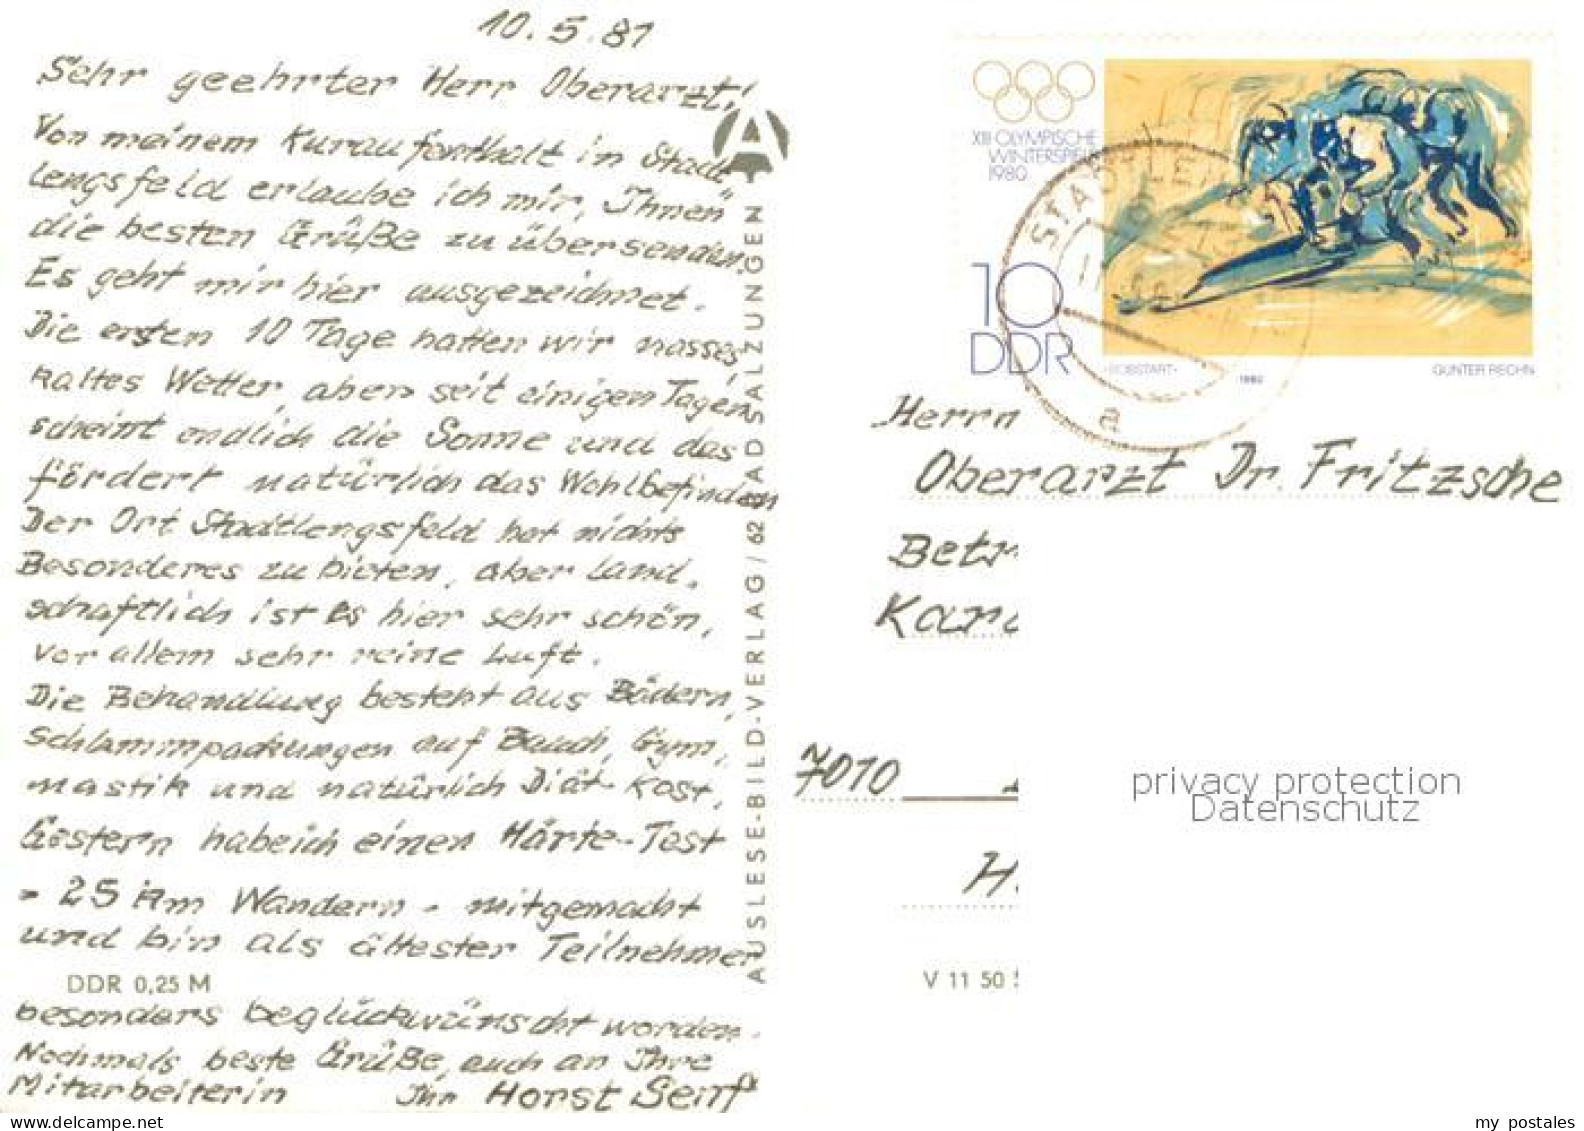 10.5.81
Sehr geehrter Herr Oberarzt!
Von meinem Kuraufenthalt in Stadt
lengsfeld erlaube ich mir, Ihnen
die besten Grüße zu übersenden.
Es geht mir hier ausgezeichnet.
Die ersten 10 Tage hatten wir nasses,
kaltes Wetter aber seit einigen Tagen
scheint endlich die Sonne und das
fördert natürlich das Wohlbefinden
Der Ort Stadtlengsfeld hat nichts
Besonderes zu bieten, aber land-
schaftlich ist es hier sehr schön,
vor allem sehr reine Luft.
Die Behandlung besteht aus Bädern,
Schlammpackungen auf Bauch, Gym,
mastik und natürlich Diät-Kost.
Gestern habe ich einen Härte-Test
- 25 km Wandern - mitgemacht
und bin als ältester Teilnehmer
DDR 0,25 M
besonders beglückwünscht worden.
Nochmals beste Grüße, auch an Ihre
Mitarbeiterin Ihr Horst Senf
AUSLESE-BILD-VERLAG / 62 BAD SALZUNGEN
XIII. OLYMPISCHE
WINTERSPIELE
1980
10
DDR
»BOBSTART«
1980
GÜNTER RECHN
STADTLEN
a
Herrn
Oberarzt Dr. Fritzsche
Betr
Kar
7010
H.
V 11 50
privacy protection
Datenschutz
www.delcampe.net
my_postales